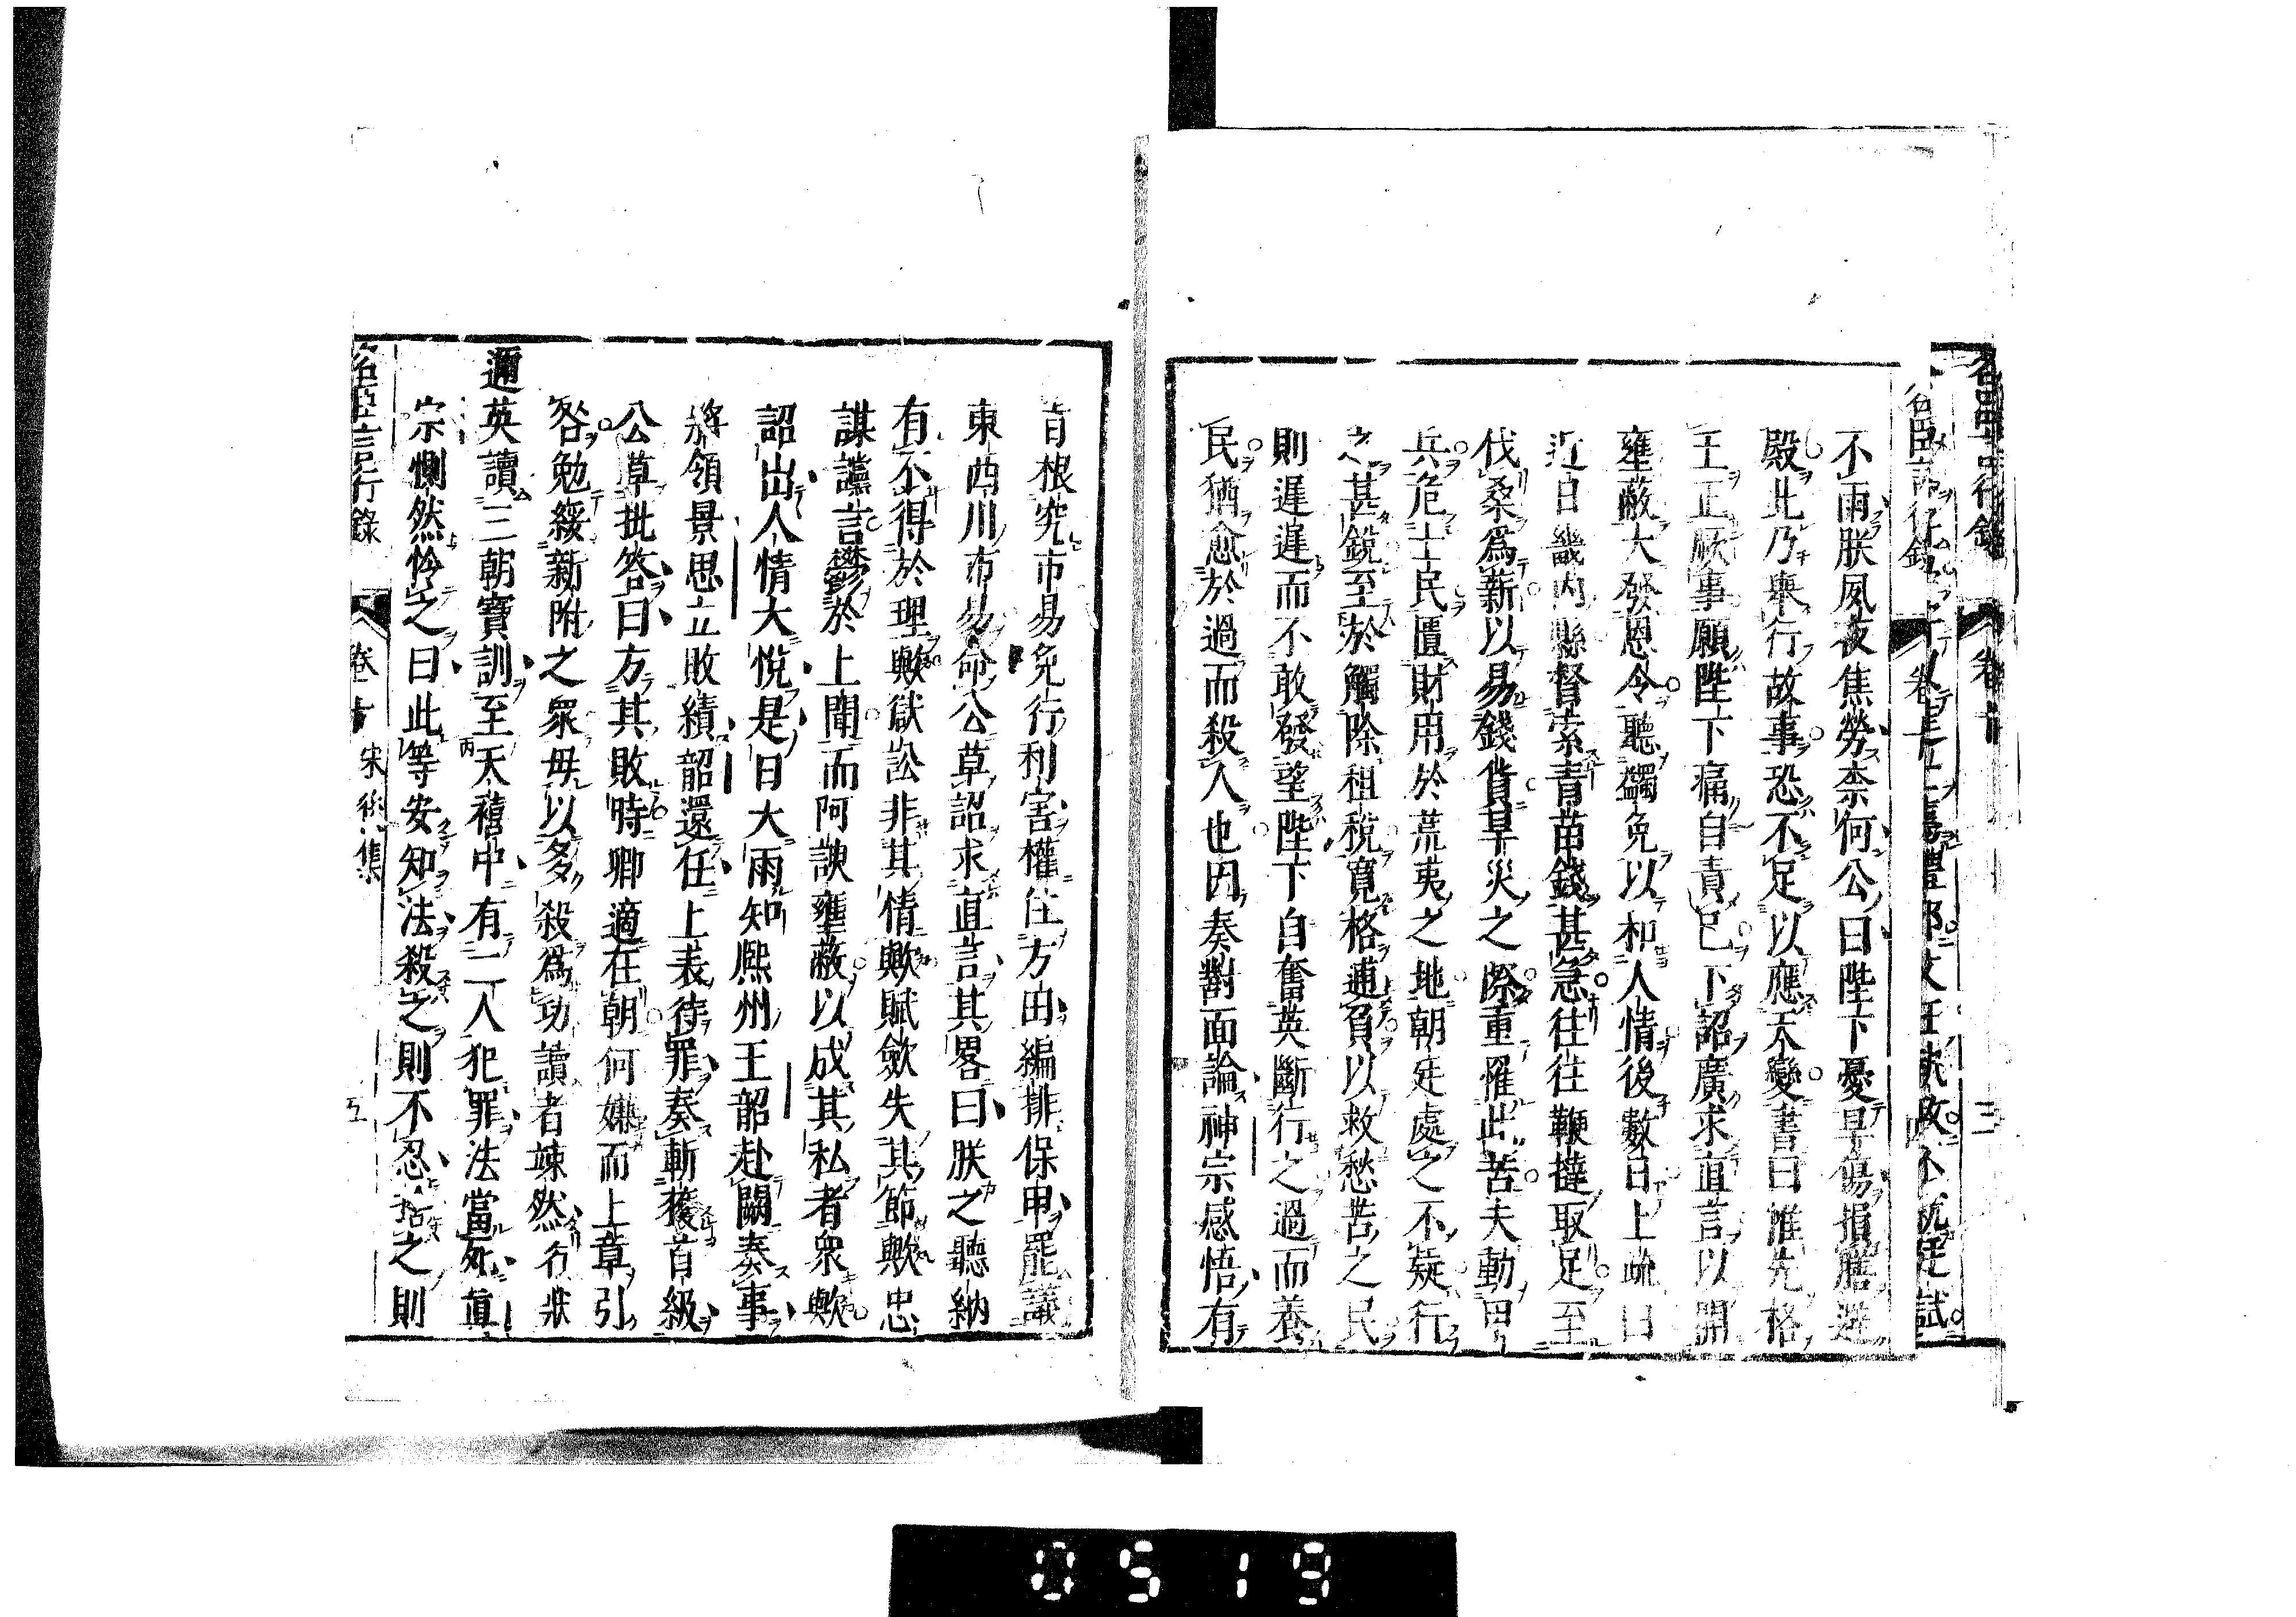 名臣言行錄
卷十
不雨朕夙夜焦勞柰何公曰陛下憂旱傷損膳避
殿此乃舉行故事恐不足以應天變書曰惟先格
王正厥事願陛下痛自責已下詔廣求直言以開
壅蔽大發恩令聽蠲免以和人情後數日上疏曰
近日畿內縣督索青苗錢甚急往往鞭撻取足至
伐桑爲薪以易錢貨旱災之際重罹此苦夫動甲
兵危士民匱財用於荒夷之地朝廷處之不疑行
之甚銳至於觸除租稅寬格逋負以救愁苦之民
則遲遲而不敢發望陛下自奮英斷行之過而養
民猶愈於過而殺人也因奏對面論神宗感悟有
旨根究市易免行利害權住方田編排保甲罷議
東西川市易命公草詔求直言其畧曰朕之聽納
有不得於理歟獄訟非其情歟賦歛失其節歟忠
謀讜言鬱於上聞而阿諛壅蔽以成其私者衆歟
詔出人情大悅是日大雨知熈州王韶赴闕奏事
將領景思立敗績韶還任上表待罪奏斬獲首級
公草批答曰方其敗時卿適在朝何嫌而上章引
咎勉綏新附之衆毋以多殺爲功讀者竦然 行狀
邇英讀三朝寶訓至天禧中有二人犯罪法當死眞
宗惻然怜之曰此等安知法殺之則不忍捨之則
名臣言行錄
卷十
宋後集
五
0519